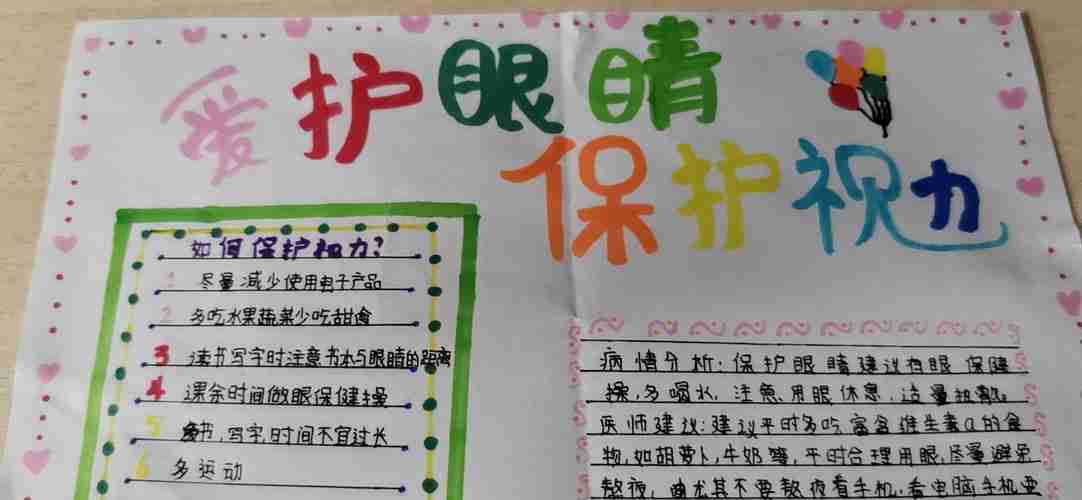 爱护眼睛
保护视力
如何保护视力?
1 尽量减少使用电子产品
2 多吃水果蔬菜少吃甜食
3 读书写字时注意书本与眼睛的距离
4 课余时间做眼保健操
5 读书,写字,时间不宜过长
6 多运动
病情分析:保护眼睛建议做眼保健
操,多喝水,注意用眼休息,适量热敷。
医师建议:建议平时多吃富含维生素a的食
物,如胡萝卜,牛奶等,平时合理用眼,尽量避免
熬夜,尤其不要熬夜看手机,看电脑手机要